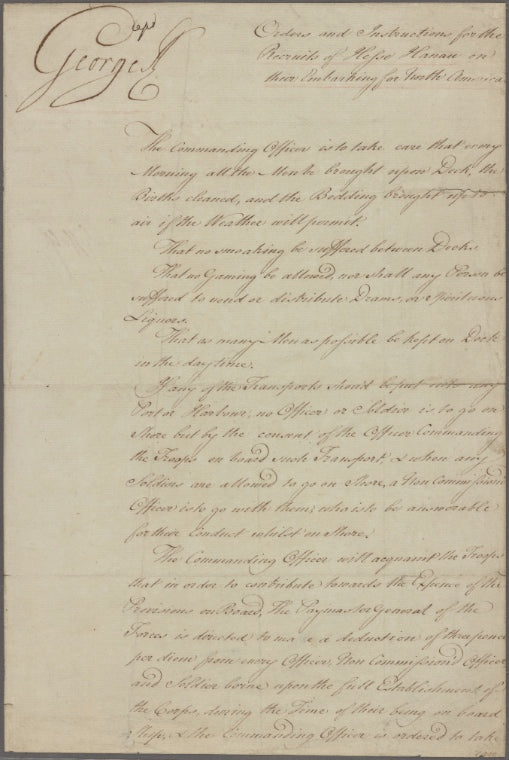 George R
Orders and Instructions for the
Recruits of Hesse Hanau on
their Embarking for North America
The Commanding Officer is to take care that every
Morning all the Men be brought upon Deck, the
Births cleaned, and the Bedding brought up to
air if the Weather will permit.
That no smoaking be suffered between Decks.
That no Gaming be allowed, nor shall any Person be
suffered to vend or distribute Drams, or spirituous
Liquors.
That as many Men as possible be kept on Deck
in the day time.
If any of the Transports shou'd be put into any
Port or Harbour, no Officer or Soldier is to go on
Shore but by the consent of the Officer Commanding
the Troops on board such Transport, & when any
Soldiers are allowed to go on Shore, a Non Commission'd
Officer is to go with them, who is to be answerable
for their Conduct whilst on Shore.
The Commanding Officer will acquaint the Troops
that in order to contribute towards the Expence of the
Provisions on Board, The Paymaster General of the
Forces is directed to make a deduction of three pence
per diem from every Officer, Non Commission'd Officer
and Soldier borne upon the full Establishment of
the Corps, during the Time of their being on board
Ship, & the Commanding Officer is ordered to take